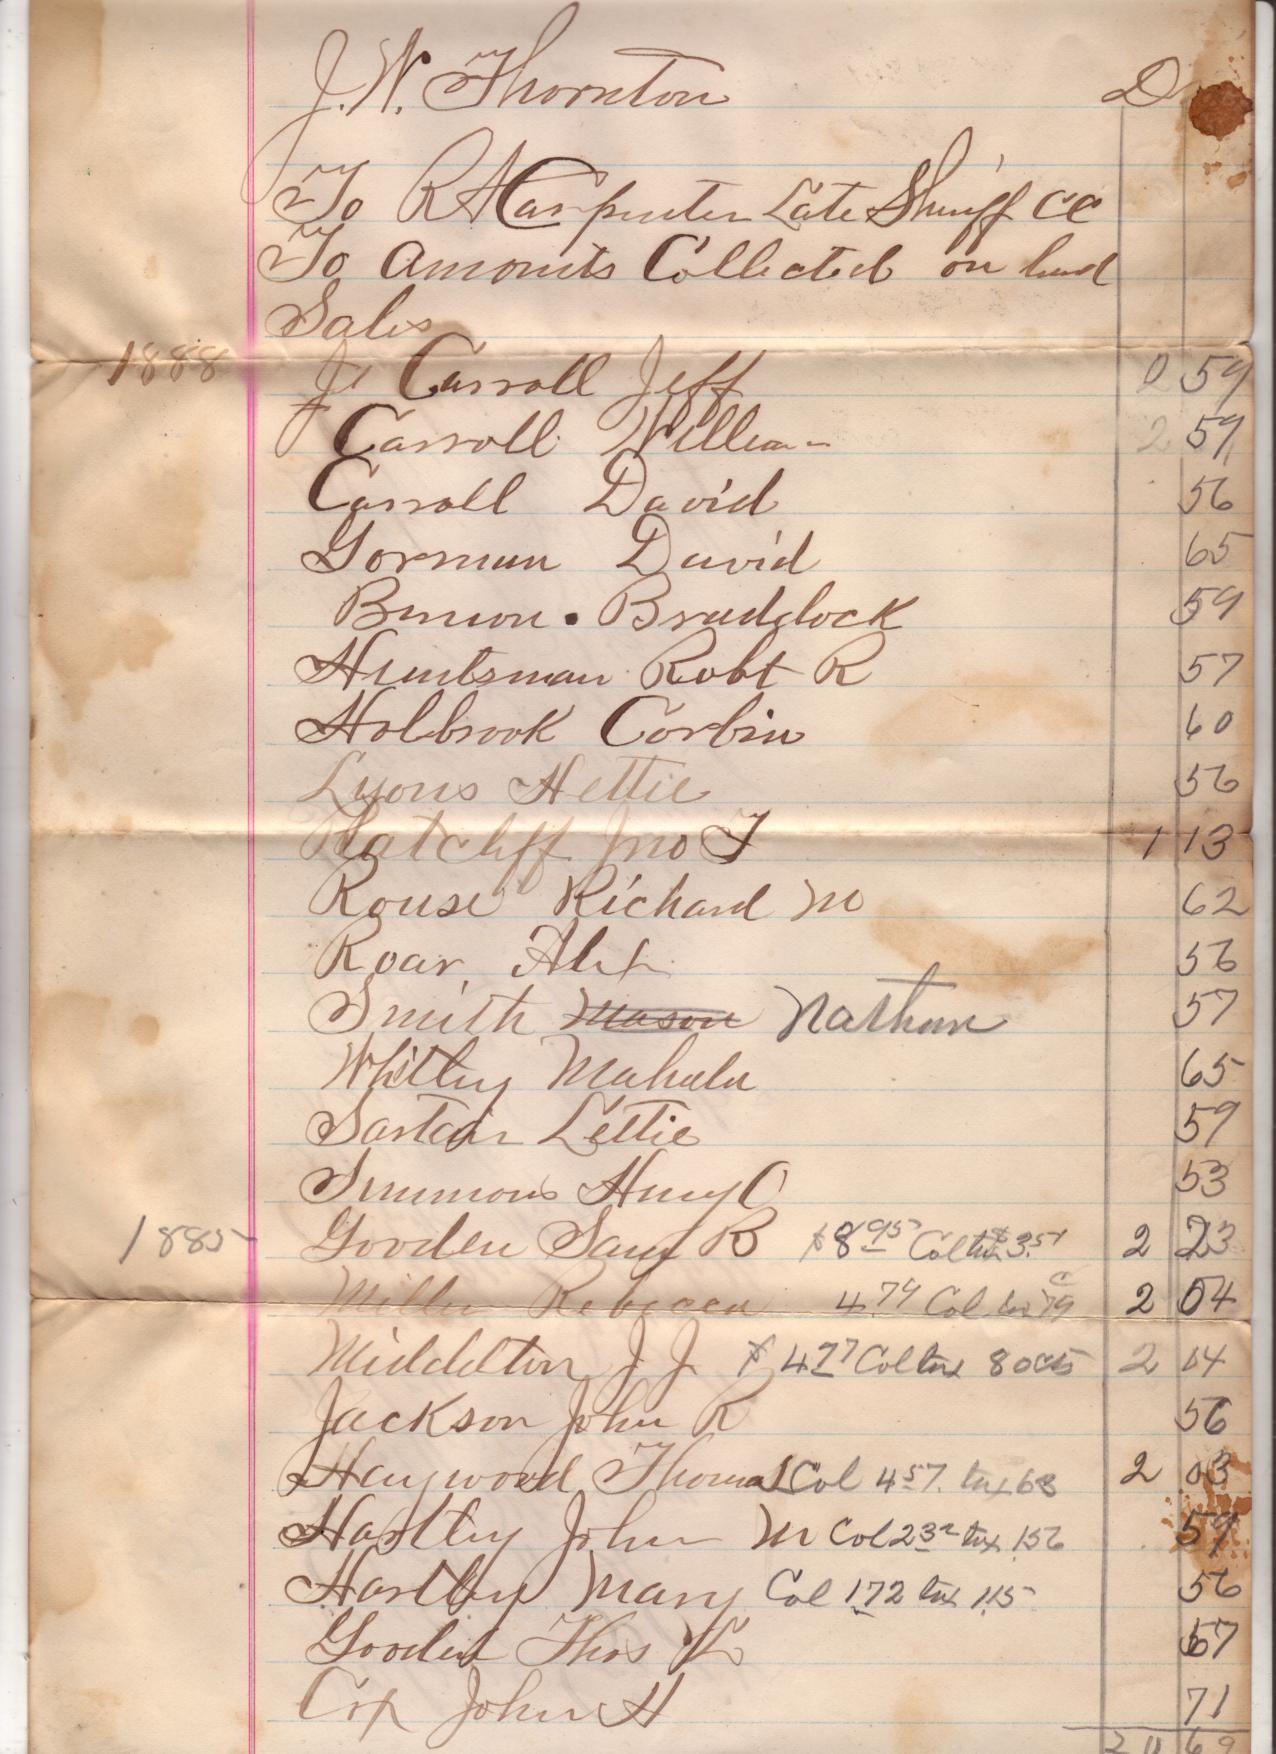 J. W. Thornton D
To R H Carpenter Late Sheriff CC
To Amounts Collected on land
Sales
1888 Carroll Jeff 59
Carroll William 2 59
Carroll David 56
Gorman David 65
Binion . Braddock 59
Huntsman Robt R 57
Holbrook Corbin 60
Lyons Hettie 56
Ratcliff Jno T 1 13
Rouse Richard M 62
Roar, Alex 56
Smith Mason Nathan 57
Whitley Mahala 65
Sartain Lettie 59
Simmons Henry C 53
1885 Gooden Sam B $8 95 Col tax $3.51 2 23
Miller Rebecca 4.79 Col tax 79 2 04
Middelton J J $ 4 77 Col tax 80cts 2 04
Jackson John R 56
Haywood Thomas Col 4 57. tax 63 2 03
Hartley John M Col 2 32 tax 156 59
Hartley Mary Col 172 tax 115 56
Gooden Thos 57
Cox John H 71
69